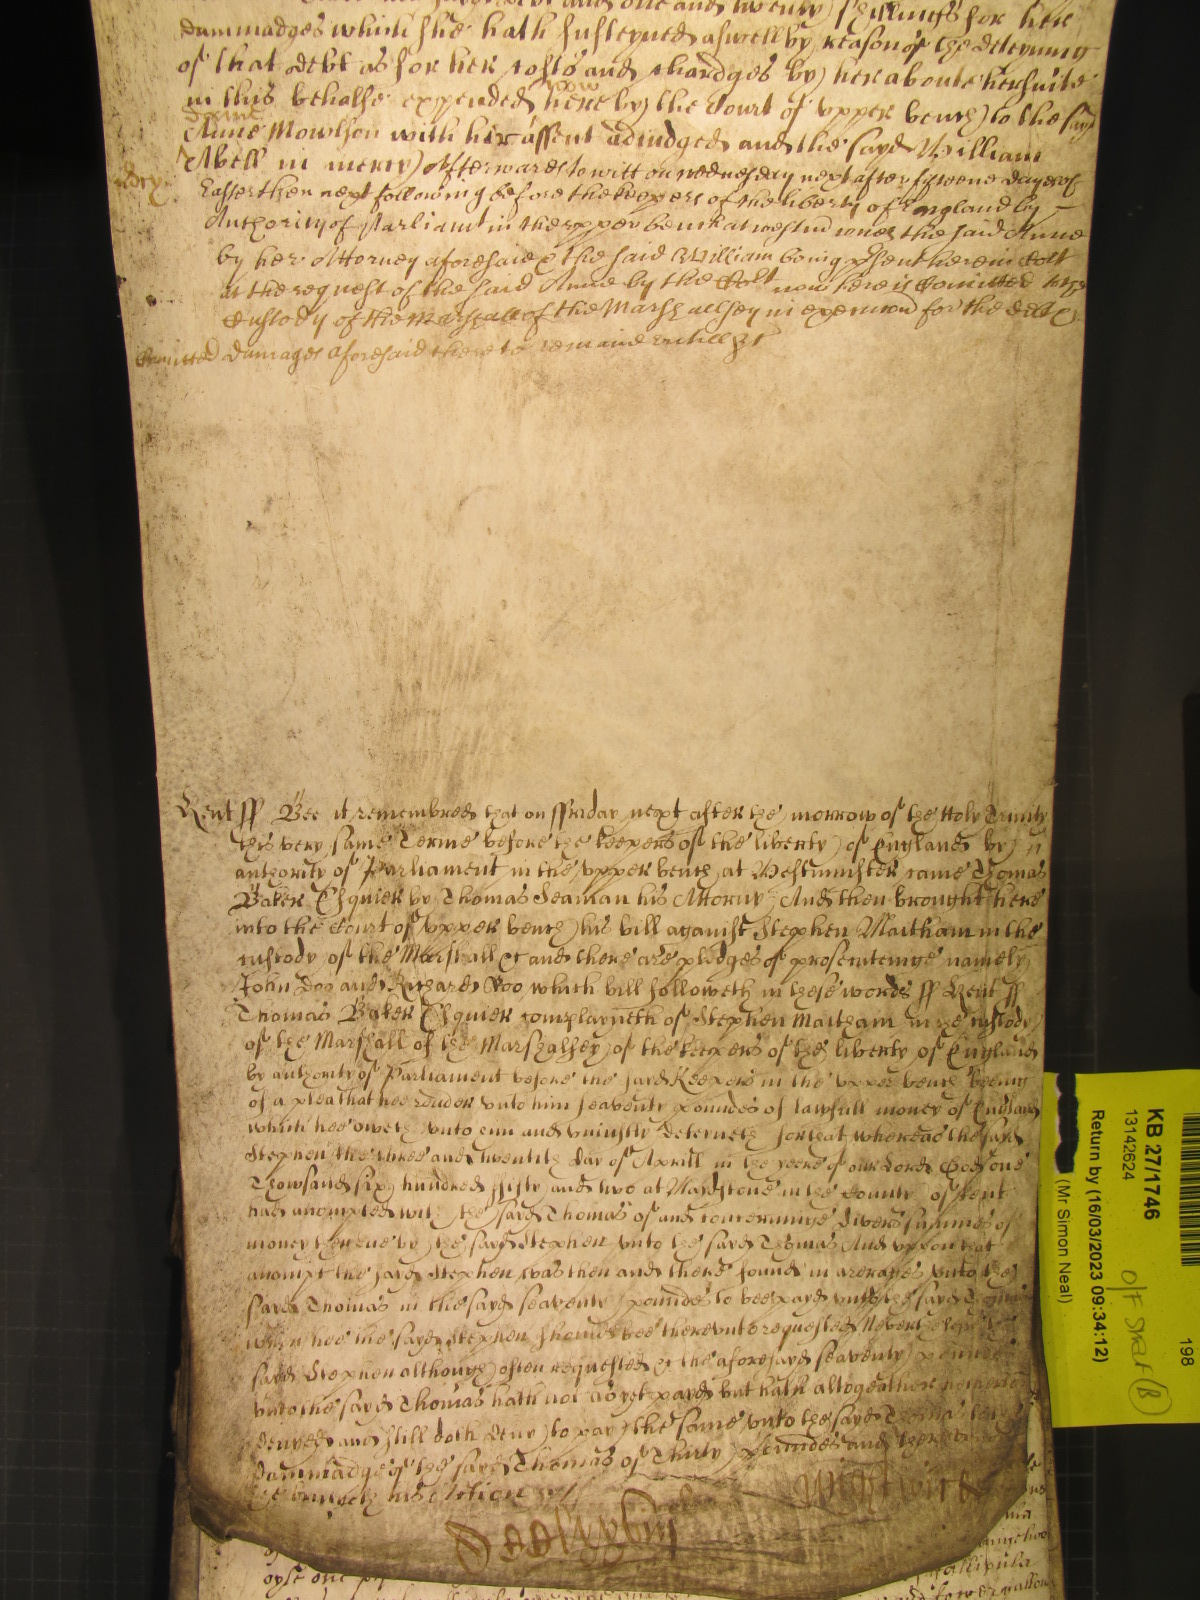 and one and twenty shillings for her
dammadges which she hath susteyned aswell by reason of the deteyning
of that debt as for her costs and chardges by her aboute her suite
in this behalfe expended here by the Court of upper bench to the sayd
now
same
Anne Mowlson with her assent adiudged and the sayd William
Abell in mercy Afterwards to witt on wednesday next after fifteene dayes of
Easter then next following before the keepers of the liberty of England by
Authority of Parliamt in the upper bench at westm comes the said Anne
by her Attorney aforesaid & the said William being psent here in Cort
at the request of the said Anne by the Cort now here is Comitted to the
Custody of the Marshall of the Marshallsey in execucion for the debt &
Comitted damages aforesaid there to remaine untill &c
Kent ss Bee it remembred that on ffriday next after the morrow of the Holy Trinity
this very same Terme before the keepers of the liberty of England by
authority of Parliament in the upper bench at Westminster came Thomas
Baker Esquier by Thomas Seaman his Attorny And then brought here
into the Court of upper bench his bill against Stephen Maitham in the
custody of the Marshall &c and there are pledges of prosecuteinge namely
John Doo and Richard Roo which bill followeth in these words ss Kent ss
Thomas Baker Esquier complayneth of Stephen Maitham in the custody
of the Marshall of the Marshalsey of the keepers of the liberty of England
by authority of Parliament before the sayd Keepers in the upper bench beeing
of a plea that hee render unto him seaventy poundes of lawfull money of England
which hee oweth unto him and uniustly deteyneth for that whereas the sayd
Stephen the three and twentith day of Aprill in the yeere of our Lord God one
Thowsand six hundred fifty and two at Maydstone in the County of Kent
had accompted with the sayd Thomas of and concerninge divers summes of
money by the sayd Stephen unto the sayd Thomas And uppon that
accompt the sayd Stephen was then and there found in arerages unto the
sayd Thomas in the sayd seaventy poundes to bee payd unto the sayd Thomas
when hee the sayd Stephen should bee thereunto requested Neverthelesse the
sayd Stephen although often requested &c the aforesayd seaventy poundes
unto the sayd Thomas hath not as yet payd but hath altogeather
denyed and still doth deny to pay the same unto the sayd Thomas
Dammadge of the sayd Thomas of Thirty Poundes and
hee bringeth his Action &c
KB 27/1746
13142624
Return by (16/03/2023 09:34:12)
(Mr Simon Neal)
198